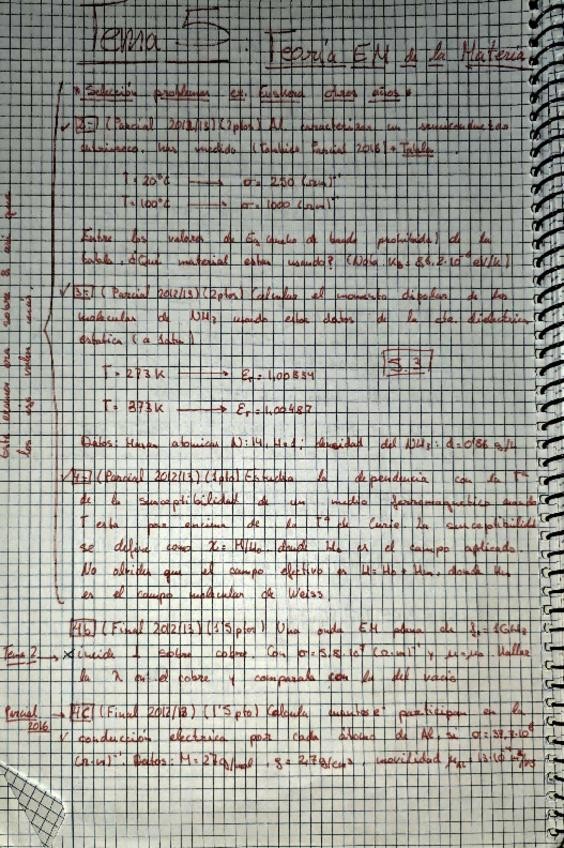 Tema 5. Teoría EM de la Materia
* Selección problemas ex. Euskera otros años *
2- (Parcial 2012/13) (2ptos) Al caracterizar un semiconductor
intrínseco, has medido (También Parcial 2016) + Tabla
T = 20°C → σ = 250 (Ω·m)⁻¹
T = 100°C → σ = 1000 (Ω·m)⁻¹
Entre los valores de Eg (ancho de banda prohibida) de la
tabla, ¿Qué material estas usando? (Nota KB = 86,2·10⁻⁶ eV/K)
3- (Parcial 2012/13) (2ptos) Calcular el momento dipolar de las
moleculas de NH3 usando estos datos de la cte. dielectrica
estatica (a 1atm)
5.3
T = 273K → Er = 1,00834
T = 373K → Er = 1,00487
Datos: Masas atomicas N:14, H:1; densidad del NH3: d=0'86 g/L
4- (Parcial 2012/13) (1pto) Estudia la dependencia con la Tª
de la susceptibilidad de un medio ferromagnetico cuando
T esta por encima de la Tª de Curie. La susceptibilidad
se define como χ = M/H0 donde H0 es el campo aplicado.
No olvides que el campo efectivo es H = H0 + Hm, donde Hm
es el campo molecular de Weiss
4b (Final 2012/13) (1'5pto) Una onda EM plana de f = 1GHz
Tema 2 → x incide ⊥ sobre cobre. Con σ = 5,8·10⁷ (Ω·m)⁻¹ y μ=μ0. Hallar
la λ en el cobre y compararla con la del vacío
Parcial 2016 → 4c (Final 2012/13) (1'5pto) Calcula cuantos e⁻ participan en la
conducción electrica por cada átomo de Al, si σ = 37,7·10⁶
(Ω·m)⁻¹. Datos: M = 27g/mol, ρ = 2,7g/cm³, movilidad μAl = 13·10⁻⁴ m²/Vs
Este examen era sobre 8 así que
los uso valen